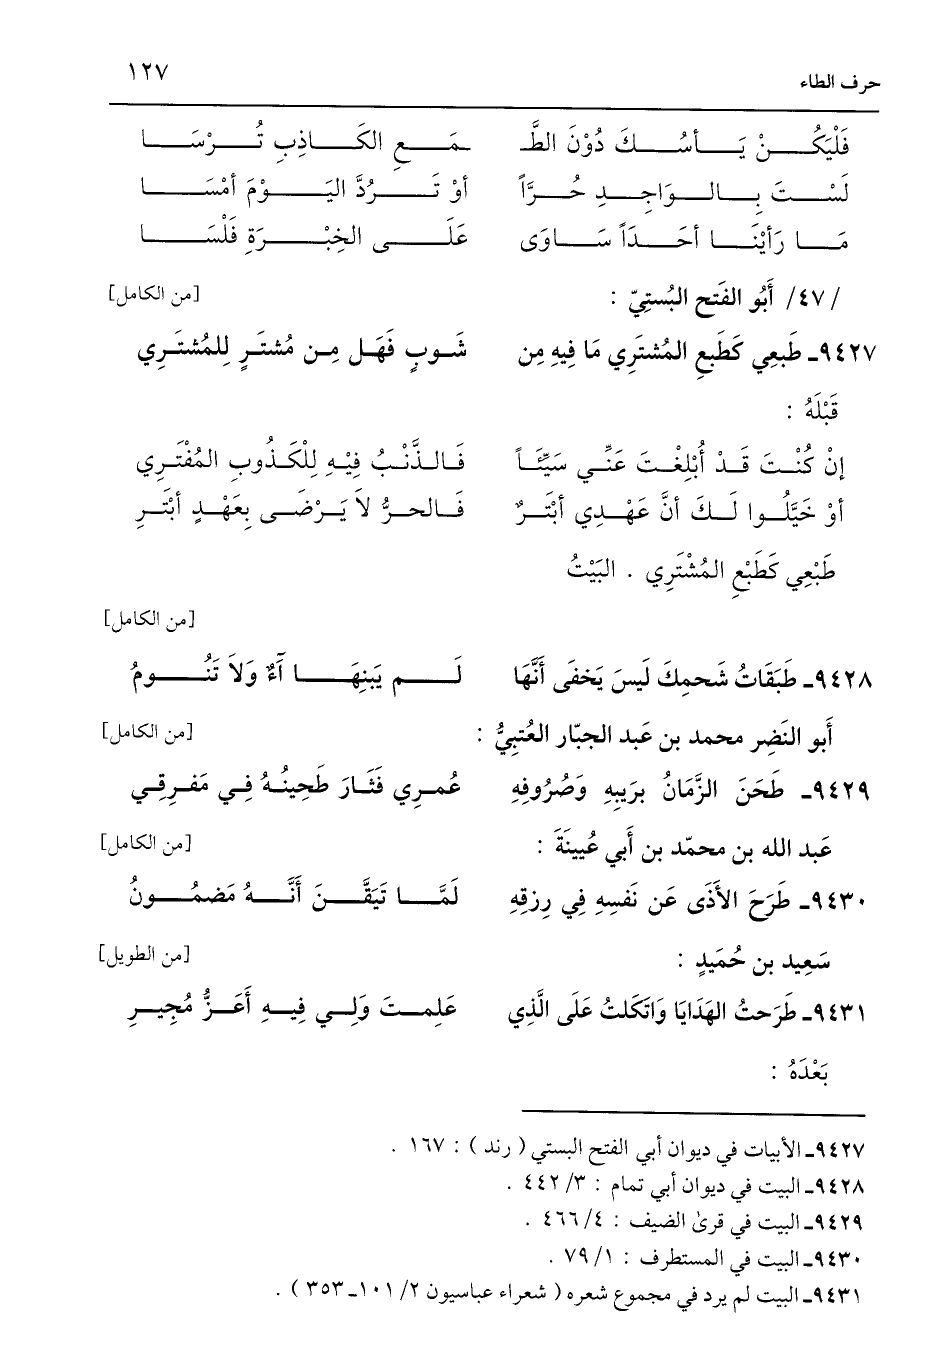 حرف الطاء ١٢٧
فَلْيَكُنْ يَأسُكَ دُوْنَ الطَّـ ـمَعِ الكَاذِبِ تُرْسَا
لَسْتَ بِالوَاجِدِ حُرَّاً أوْ تَرُدَّ اليَوْمَ أمْسَا
مَا رَأيْنَا أحَدَاً سَاوَى عَلَى الخِبْرَةِ فَلْسَا
/٤٧/ أَبُو الفَتح البُستِيّ : [من الكامل]
٩٤٢٧ـ طَبعِي كَطَبعِ المُشتَرِي مَا فِيهِ مِن شَوبٍ فَهَل مِن مُشتَرٍ لِلمُشتَرِي
قَبْلَهُ :
إنْ كُنْتَ قَدْ أُبْلِغْتَ عَنِّي سَيِّئَاً فَالذَّنْبُ فِيْهِ لِلْكَذُوبِ المُفْتَرِي
أوْ خَيَّلُوا لَكَ أنَّ عَهْدِي أبْتَرٌ فَالحرُّ لاَ يَرْضَى بِعَهْدٍ أبْتَرِ
طَبْعِي كَطَبْعِ المُشْتَرِي . البَيْتُ
[من الكامل]
٩٤٢٨ـ طَبَقَاتُ شَحمِكَ لَيسَ يَخفَى أَنَّهَا لَم يَبنِهَا آءٌ وَلاَ تَنُّومُ
أَبو النَضِر محمد بن عَبد الجبّار العُتبِيُّ : [من الكامل]
٩٤٢٩ـ طَحَنَ الزَّمَانُ بَرَيبِهِ وَصُرُوفِهِ عُمرِي فَثَارَ طَحِينُهُ فِي مَفرِقِي
عَبد الله بن محمّد بن أَبي عُيينَةَ : [من الكامل]
٩٤٣٠ـ طَرَحَ الأَذَى عَن نَفسِهِ فِي رِزقِهِ لَمَّا تَيَقَّنَ أَنَّهُ مَضمُونُ
سَعِيد بن حُمَيدٍ : [من الطويل]
٩٤٣١ـ طَرَحتُ الهَدَايَا وَاتكَلتُ عَلَى الَّذِي عَلِمتَ وَلِي فِيهِ أَعَزُّ مُجِيرِ
بَعْدَهُ :
٩٤٢٧ـ الأبيات في ديوان أبي الفتح البستي ( رند ) : ١٦٧ .
٩٤٢٨ـ البيت في ديوان أبي تمام : ٣/ ٤٤٢ .
٩٤٢٩ـ البيت في قرىٰ الضيف : ٤/ ٤٦٦ .
٩٤٣٠ـ البيت في المستطرف : ١/ ٧٩ .
٩٤٣١ـ البيت لم يرد في مجموع شعره ( شعراء عباسيون ٢/ ١٠١ـ ٣٥٣ ) .